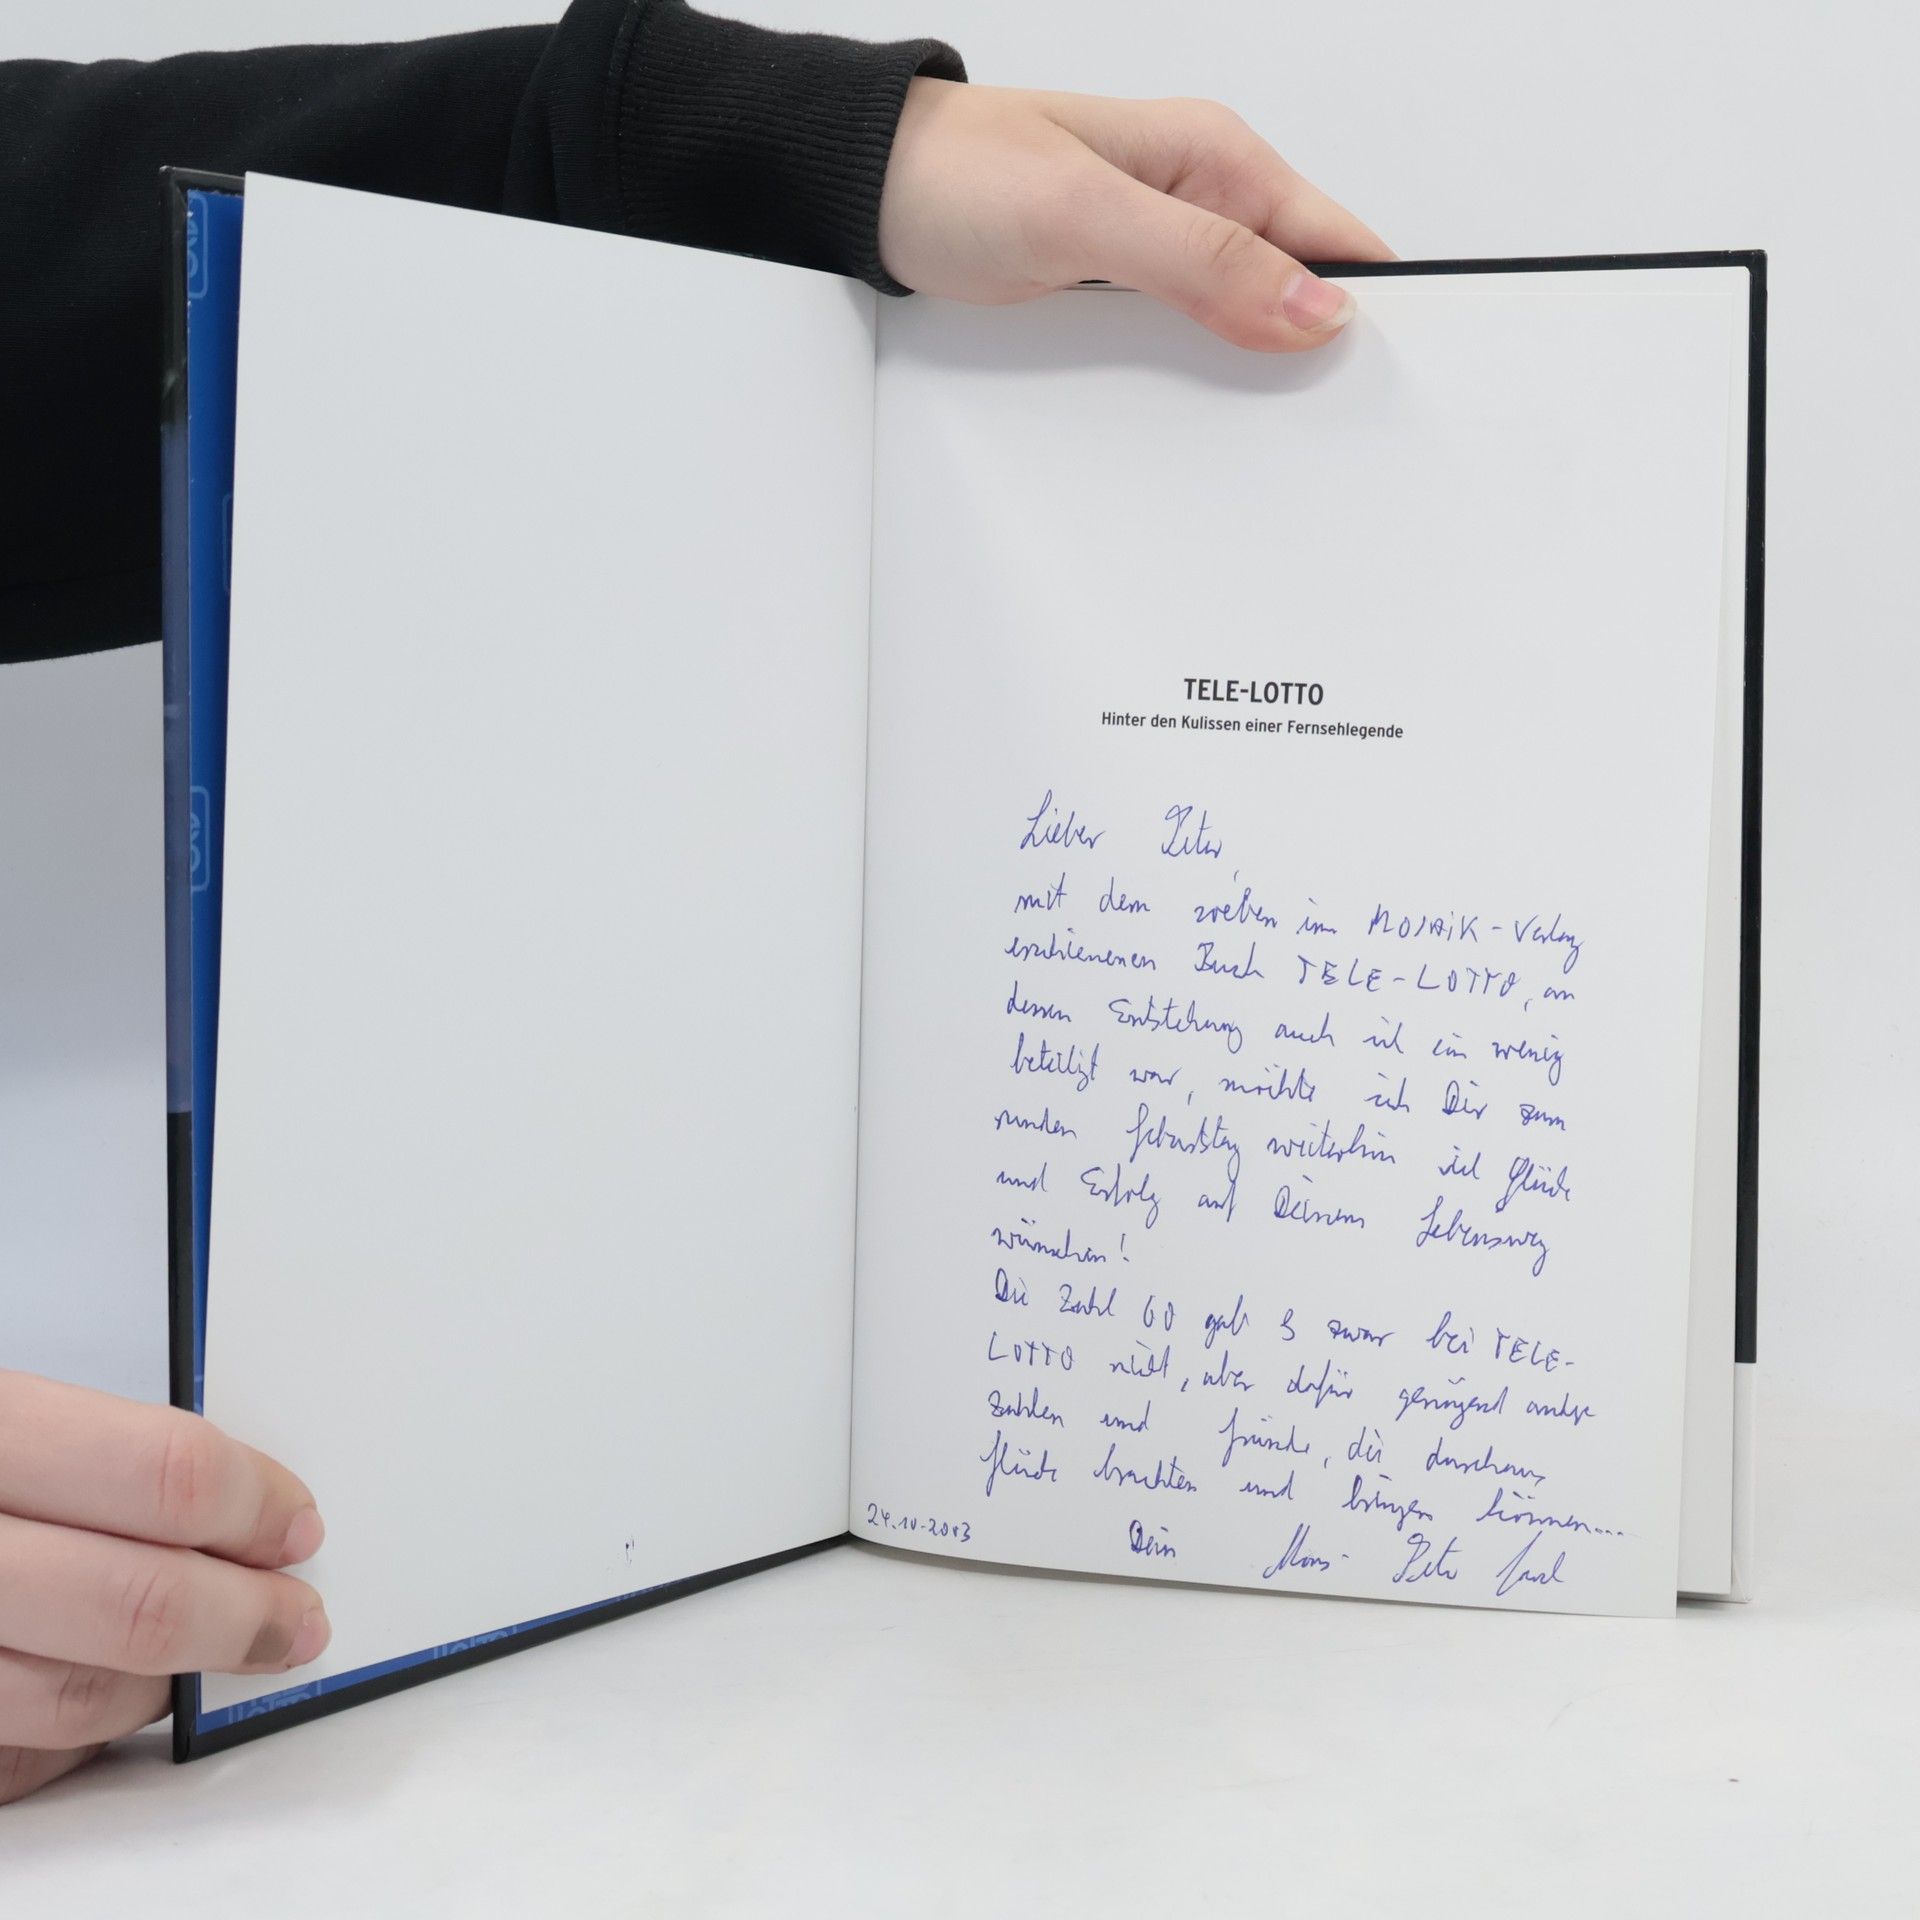 TELE-LOTTO
Hinter den Kulissen einer Fernsehlegende
Lieber Peter,
mit dem soeben im MOSAIK-Verlag
erschienenen Buch TELE-LOTTO, an
dessen Entstehung auch ich ein wenig
beteiligt war, möchte ich Dir zum
runden Geburtstag weiterhin viel Glück
und Erfolg auf Deinem Lebensweg
wünschen!
Die Zahl 60 gab es zwar bei TELE-
LOTTO nicht, aber dafür genügend andere
Zahlen und Gründe, die durchaus
Glück brachten und bringen können...
24.10.2013 Dein Hans-Peter